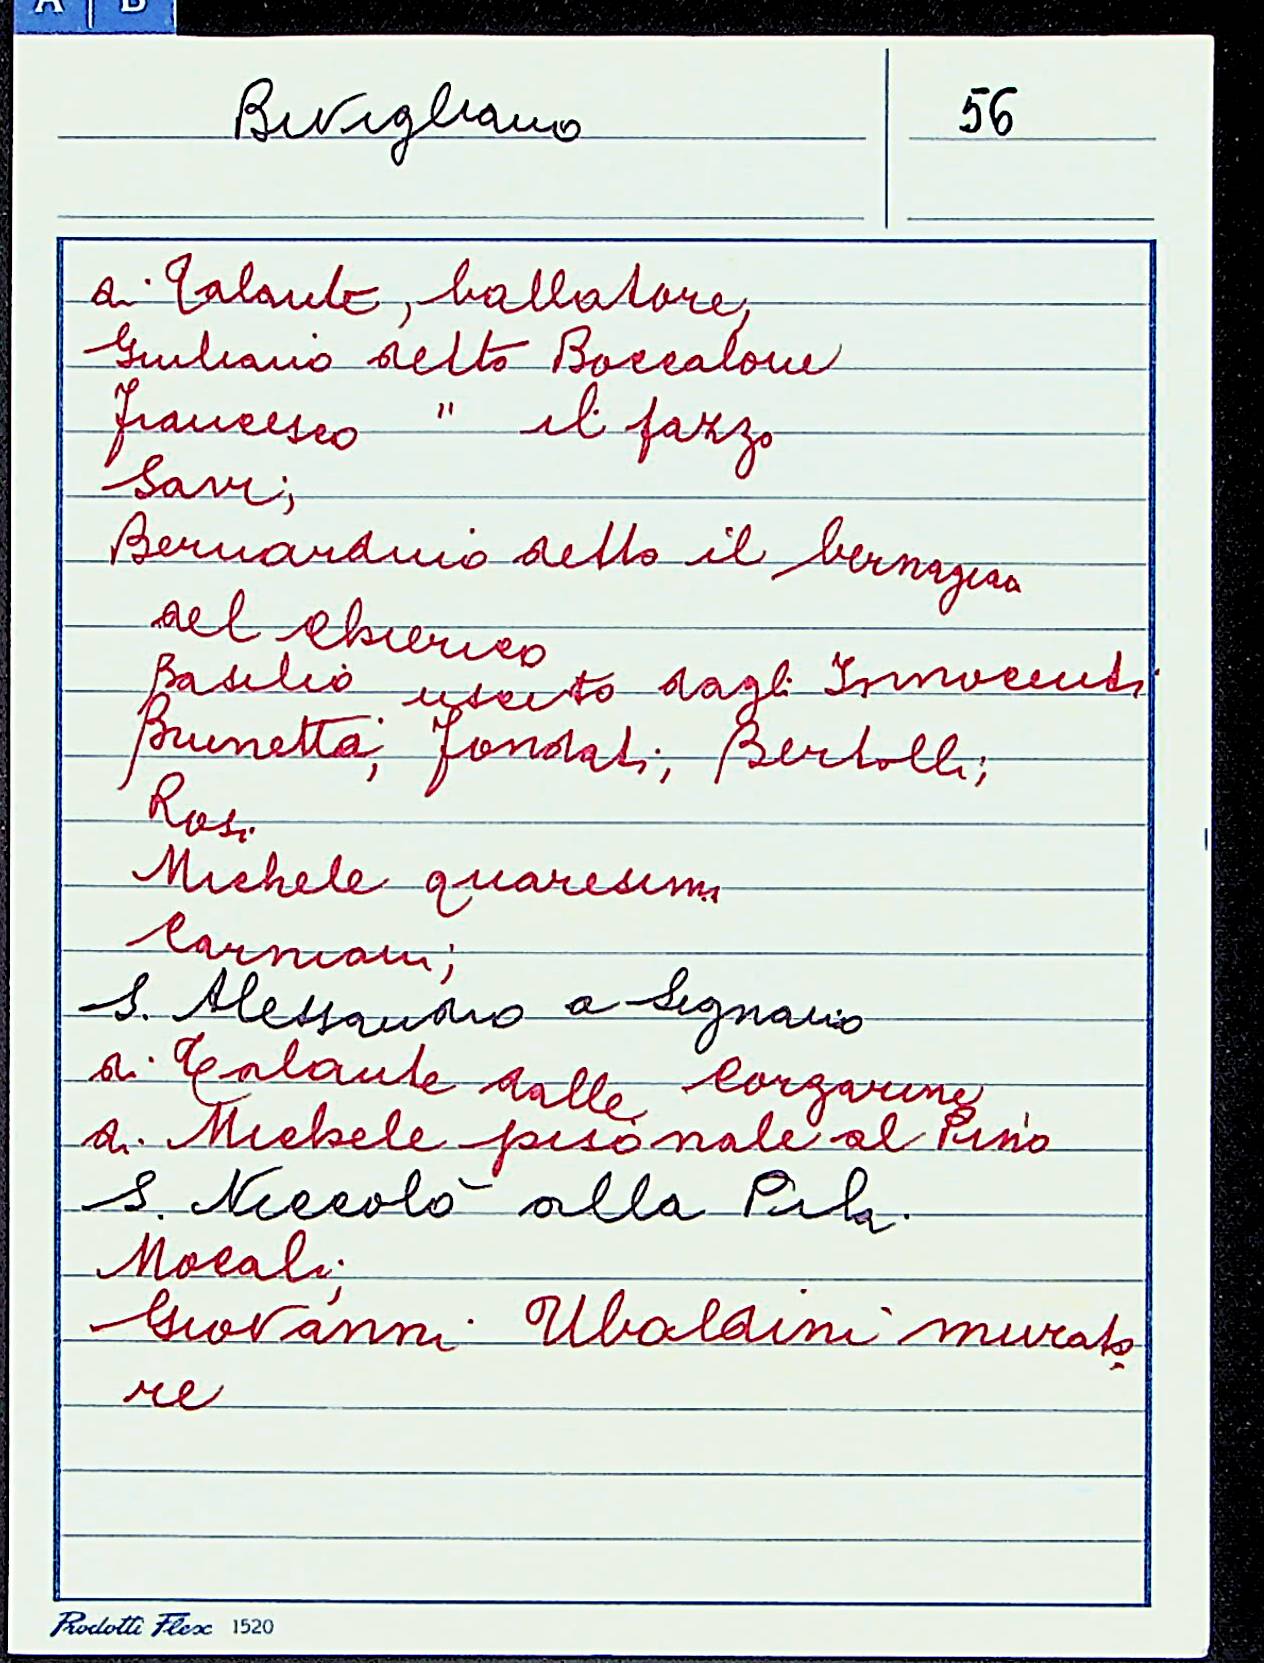 A | B
Bivigliano 56
di Talante, ballatore,
Giuliano detto Boccalone
Francesco " il fazzo
Savi;
Bernardino detto il
del chierico
Basilio uscito dagli Innocenti
Brunetta; Fondati; Bertolli;
Rosi
Michele quaresima
Carniani;
S. Alessandro a Signano
di Talante dalle Corzarine
di Michele pisónale al Pino
S. Niccolò alla Pila.
Mocali;
Giovanni Ubaldini murato
re
Prodotti Flex 1520